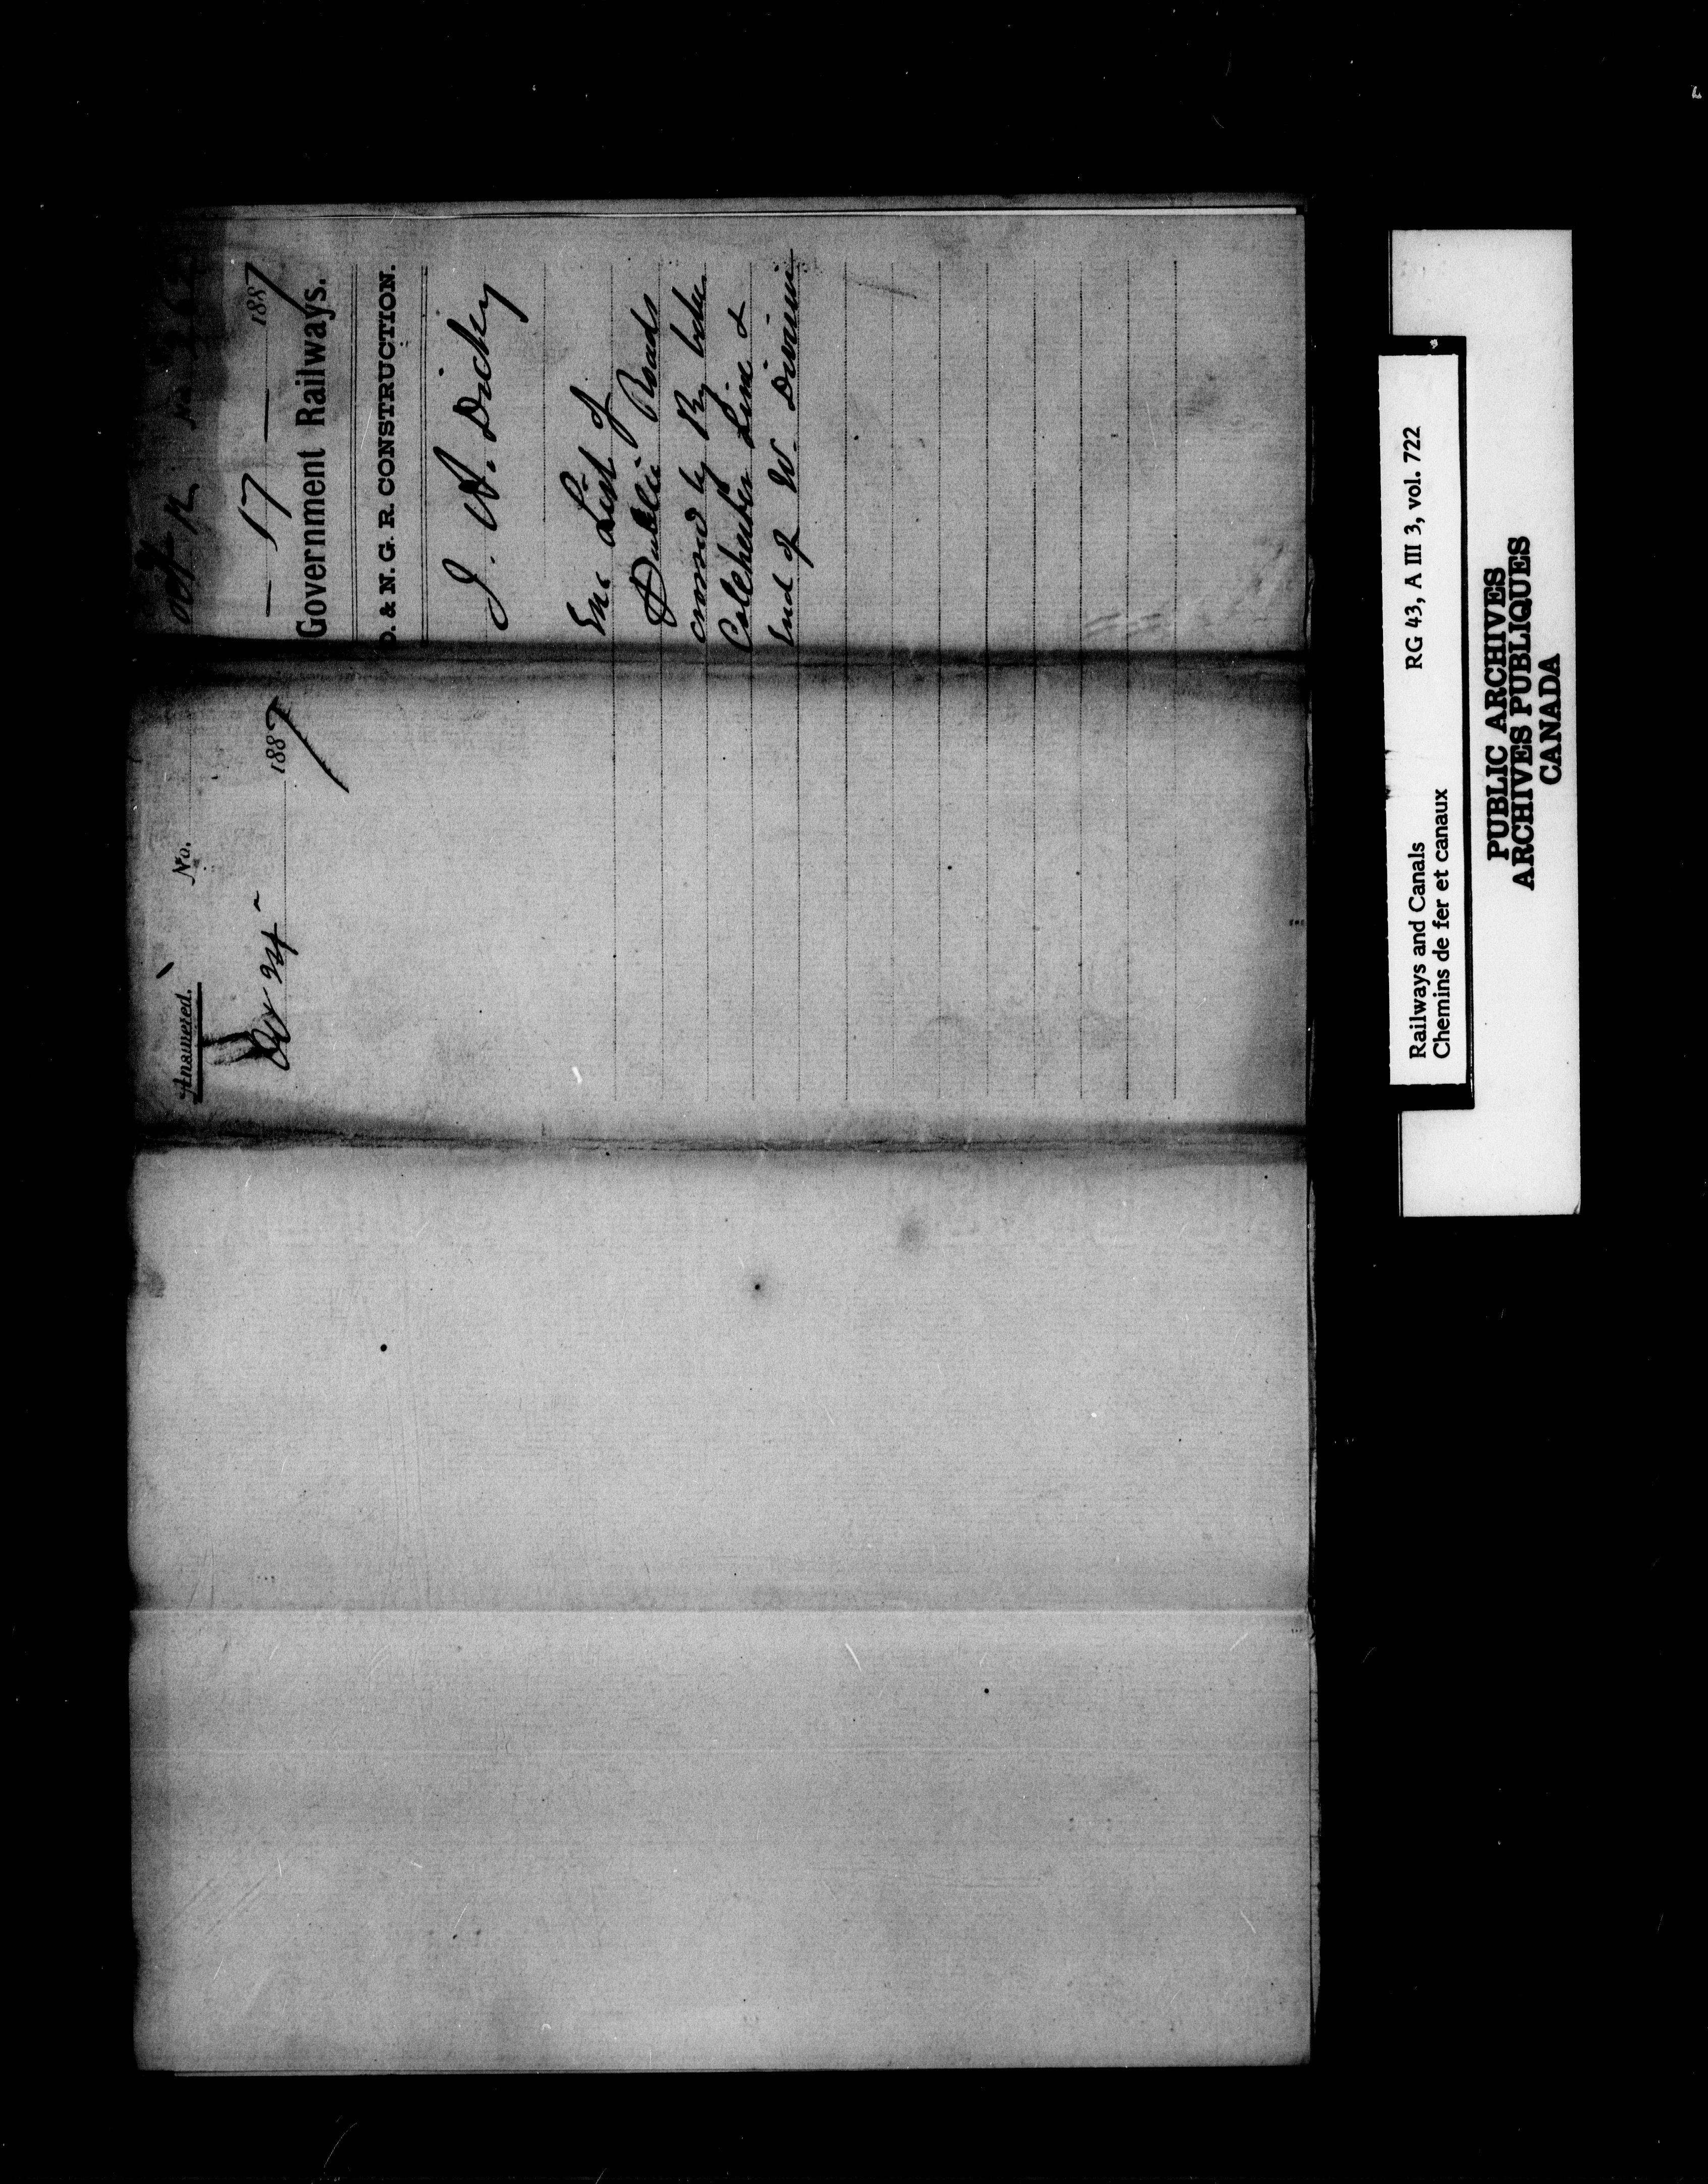 Oct 12 No.
— 17 — 1887
Government Railways.
O. & N. G. R. CONSTRUCTION.
J. A. Dickey
Enc List of
Public Roads
crossed by Ry betw.
Colchester Line &
End of W. Division
Answered. No.
Oct 24 - 1887
Railways and Canals RG 43, A III 3, vol. 722
Chemins de fer et canaux
PUBLIC ARCHIVES
ARCHIVES PUBLIQUES
CANADA